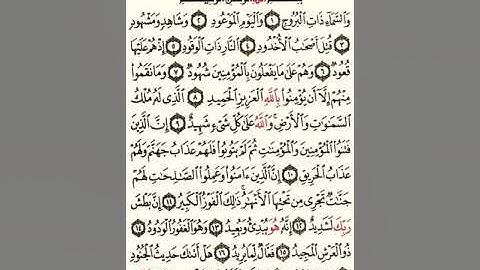 وَالسَّمَاءِ ذَاتِ الْبُرُوجِ ۝١ وَالْيَوْمِ الْمَوْعُودِ ۝٢ وَشَاهِدٍ وَمَشْهُودٍ
۝٣ قُتِلَ أَصْحَابُ الْأُخْدُودِ ۝٤ النَّارِ ذَاتِ الْوَقُودِ ۝٥ إِذْ هُمْ عَلَيْهَا
قُعُودٌ ۝٦ وَهُمْ عَلَىٰ مَا يَفْعَلُونَ بِالْمُؤْمِنِينَ شُهُودٌ ۝٧ وَمَا نَقَمُوا
مِنْهُمْ إِلَّا أَن يُؤْمِنُوا بِاللَّهِ الْعَزِيزِ الْحَمِيدِ ۝٨ الَّذِي لَهُ مُلْكُ
السَّمَاوَاتِ وَالْأَرْضِ وَاللَّهُ عَلَىٰ كُلِّ شَيْءٍ شَهِيدٌ ۝٩ إِنَّ الَّذِينَ
فَتَنُوا الْمُؤْمِنِينَ وَالْمُؤْمِنَاتِ ثُمَّ لَمْ يَتُوبُوا فَلَهُمْ عَذَابُ جَهَنَّمَ وَلَهُمْ
عَذَابُ الْحَرِيقِ ۝١٠ إِنَّ الَّذِينَ آمَنُوا وَعَمِلُوا الصَّالِحَاتِ لَهُمْ
جَنَّاتٌ تَجْرِي مِن تَحْتِهَا الْأَنْهَارُ ذَٰلِكَ الْفَوْزُ الْكَبِيرُ ۝١١ إِنَّ بَطْشَ
رَبِّكَ لَشَدِيدٌ ۝١٢ إِنَّهُ هُوَ يُبْدِئُ وَيُعِيدُ ۝١٣ وَهُوَ الْغَفُورُ الْوَدُودُ ۝١٤
ذُو الْعَرْشِ الْمَجِيدُ ۝١٥ فَعَّالٌ لِّمَا يُرِيدُ ۝١٦ هَلْ أَتَاكَ حَدِيثُ الْجُنُودِ